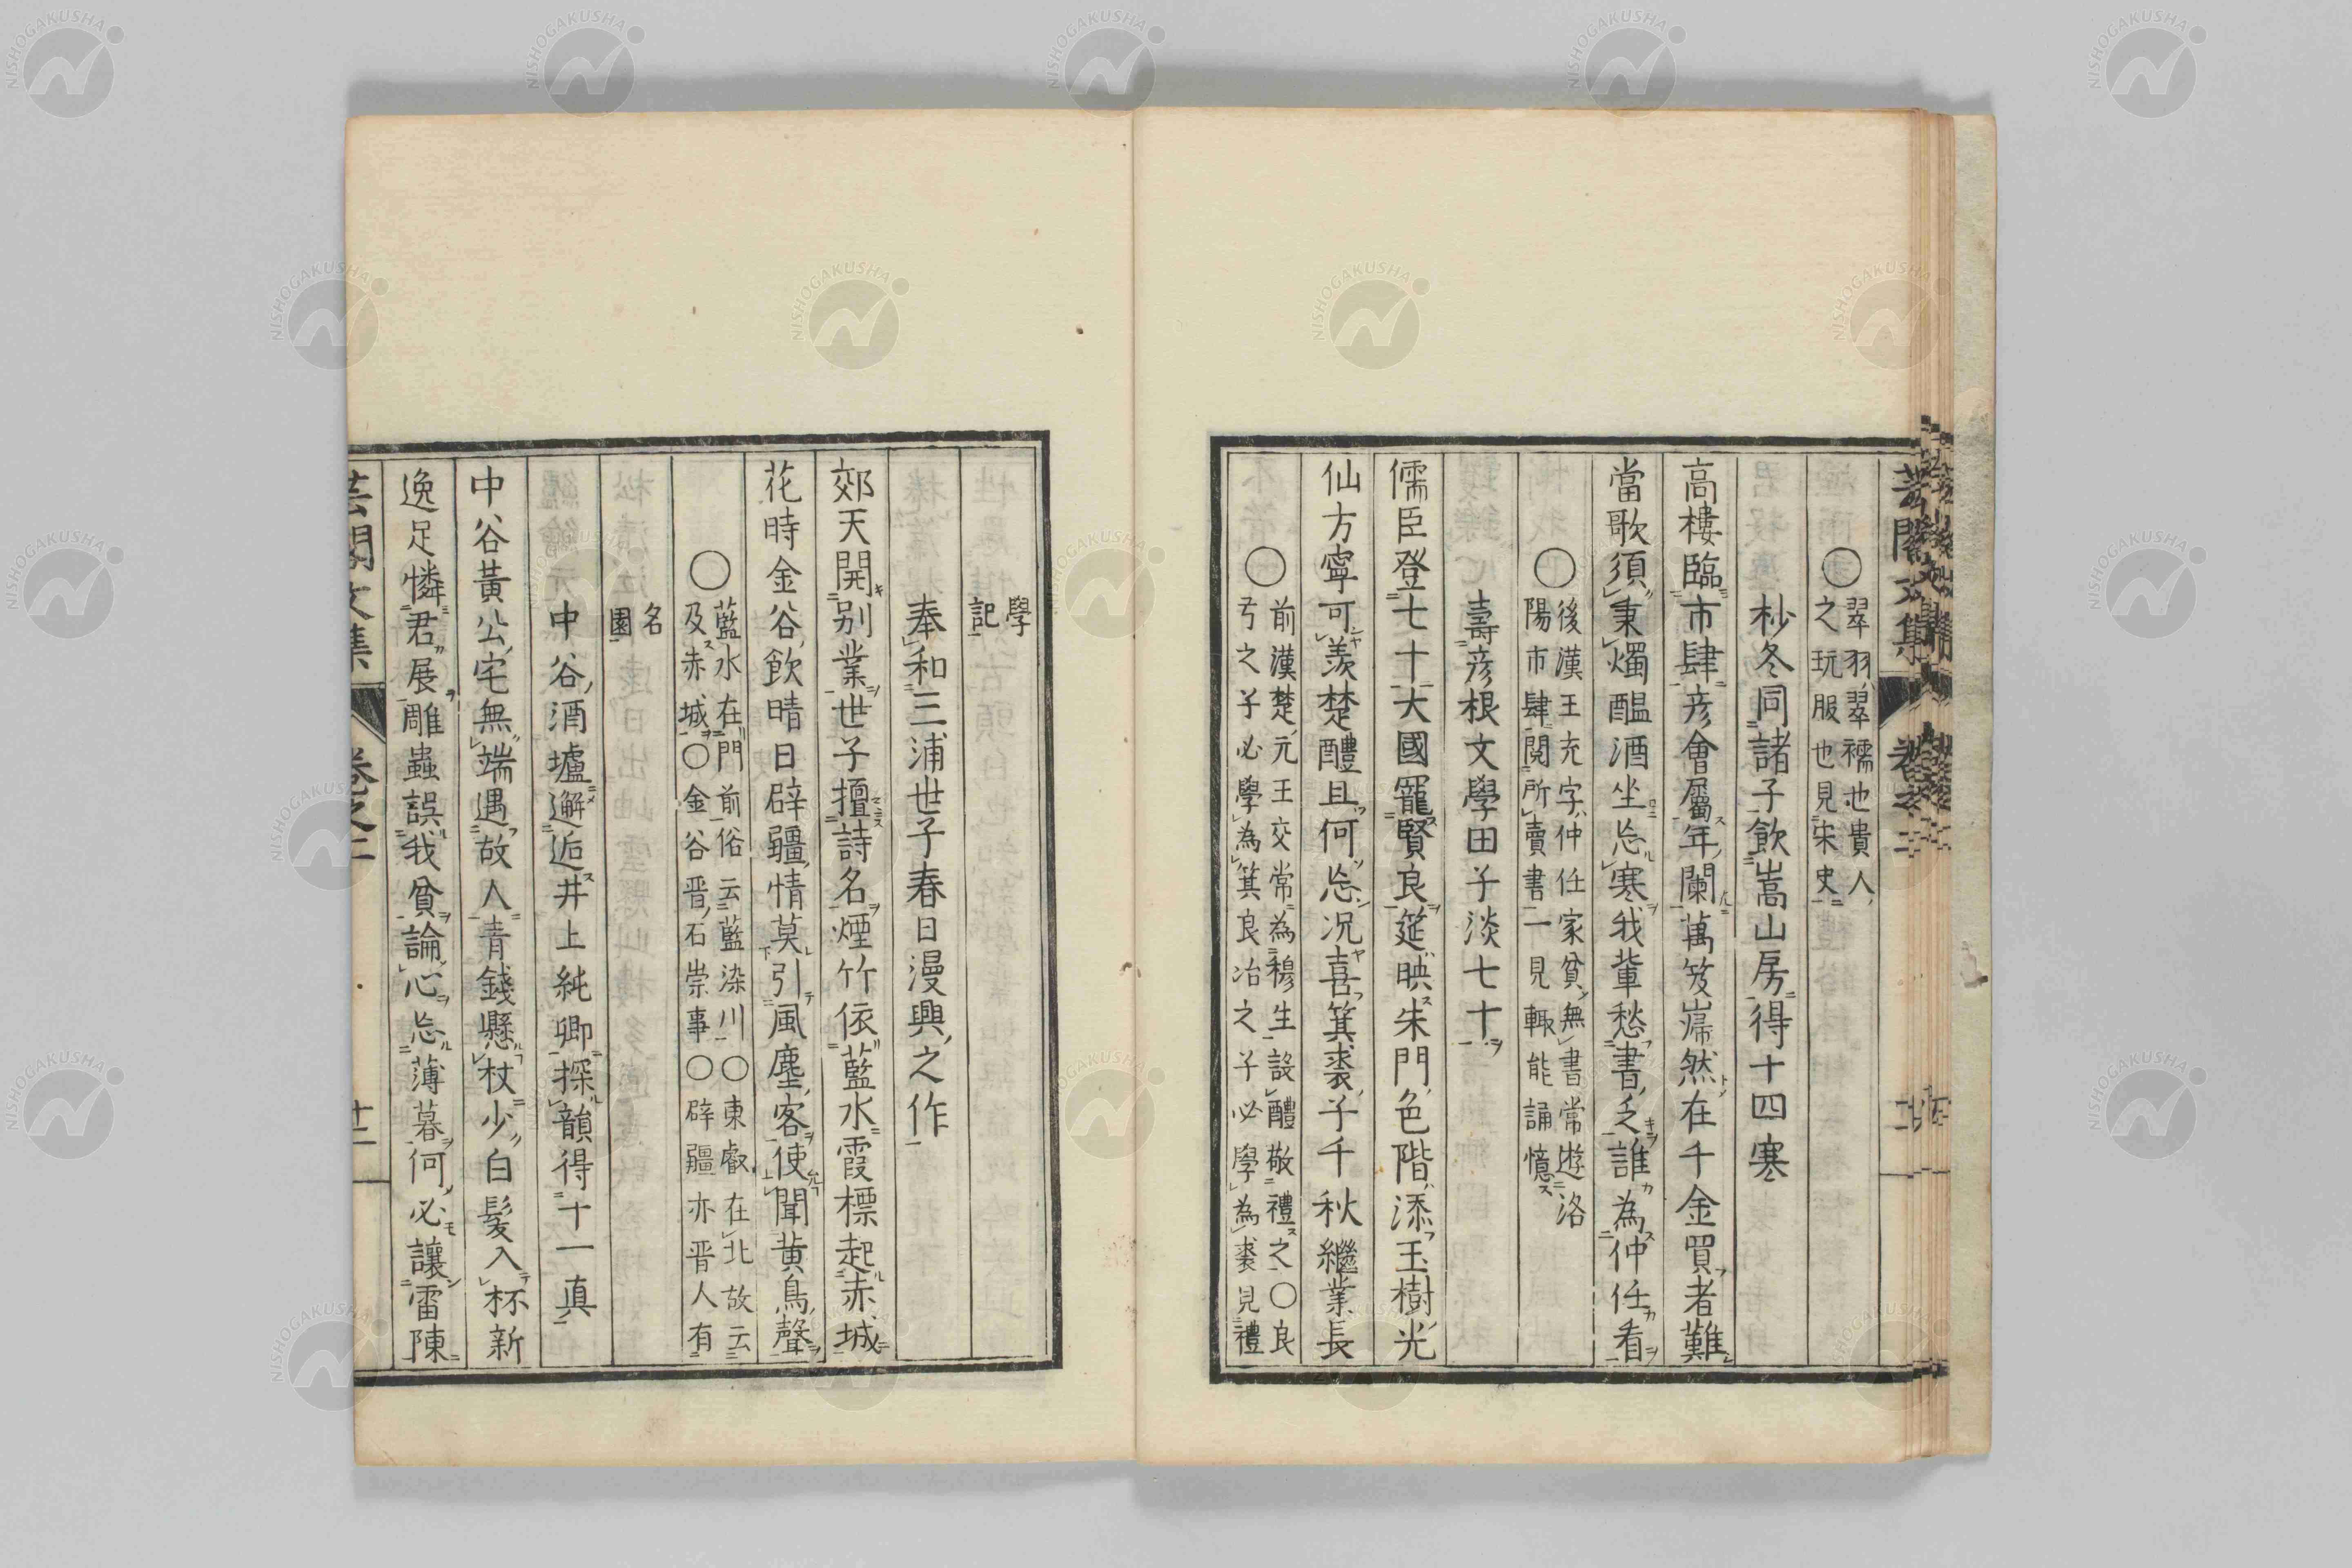 ○翠羽翠襦也貴人
之玩服也見宋史
杪冬同諸子飲嵩山房得十四寒
高樓臨市肆彦會屬年闌萬笈巋然在千金買者難
當歌須秉燭醞酒坐忘寒我輩愁書乏誰為仲任看
○後漢王充字仲任家貧無書常遊洛
陽市肆閱所賣書一見輒能誦憶
壽彦根文學田子淡七十
儒臣登七十大國寵賢良筵映朱門色階添玉樹光
仙方寧可羨楚醴且何忘况喜箕裘子千秋繼業長
○前漢楚元王交常為穆生設醴敬禮之○良
弓之子必學為箕良冶之子必學為裘見禮
學
記
奉和三浦世子春日漫興之作
郊天開別業世子擅詩名煙竹依藍水霞標起赤城
花時金谷飲晴日辟疆情莫引風塵客使聞黄鳥聲
○藍水在門前俗云藍染川○東叡在北故云
及赤城○金谷晋石崇事○辟疆亦晋人有
名
園
中谷酒壚邂逅井上純卿探韻得十一真
中谷黃公宅無端遇故人青錢懸杖少白髮入杯新
逸足憐君展雕蟲誤我貧論心忘薄暮何必讓雷陳
芸閣文集 卷之二 十二
NISHOGAKUSHA